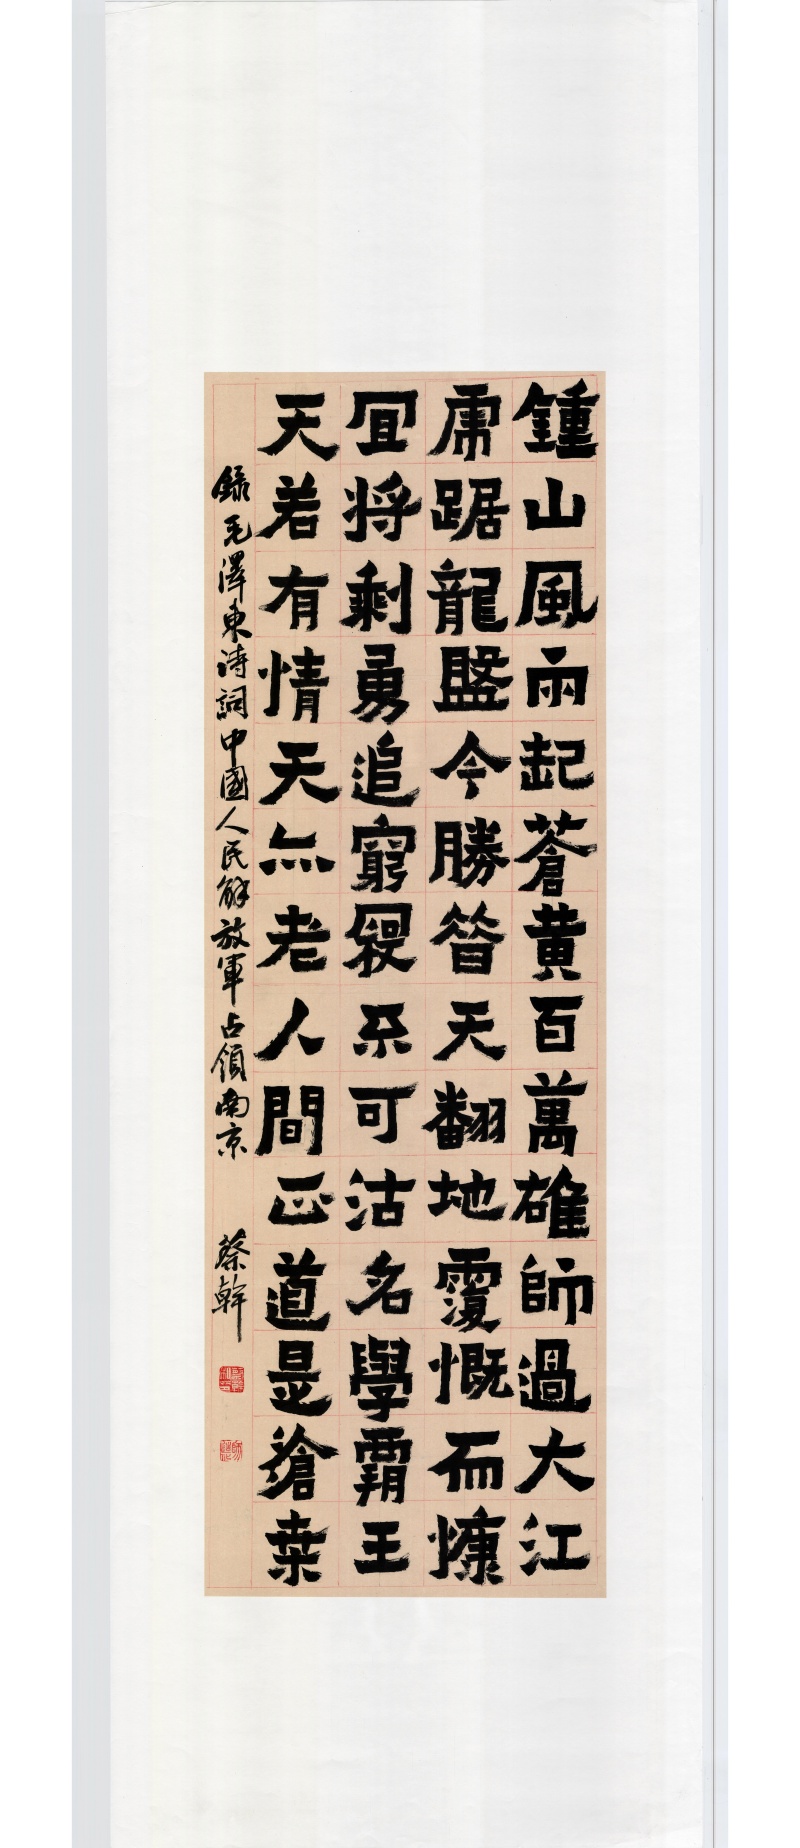 鍾山風雨起蒼黃百萬雄師過大江
虎踞龍盤今勝昔天翻地覆慨而慷
宜將剩勇追窮寇不可沽名學霸王
天若有情天亦老人間正道是滄桒
錄毛澤東詩詞中國人民解放軍占領南京
蔡幹